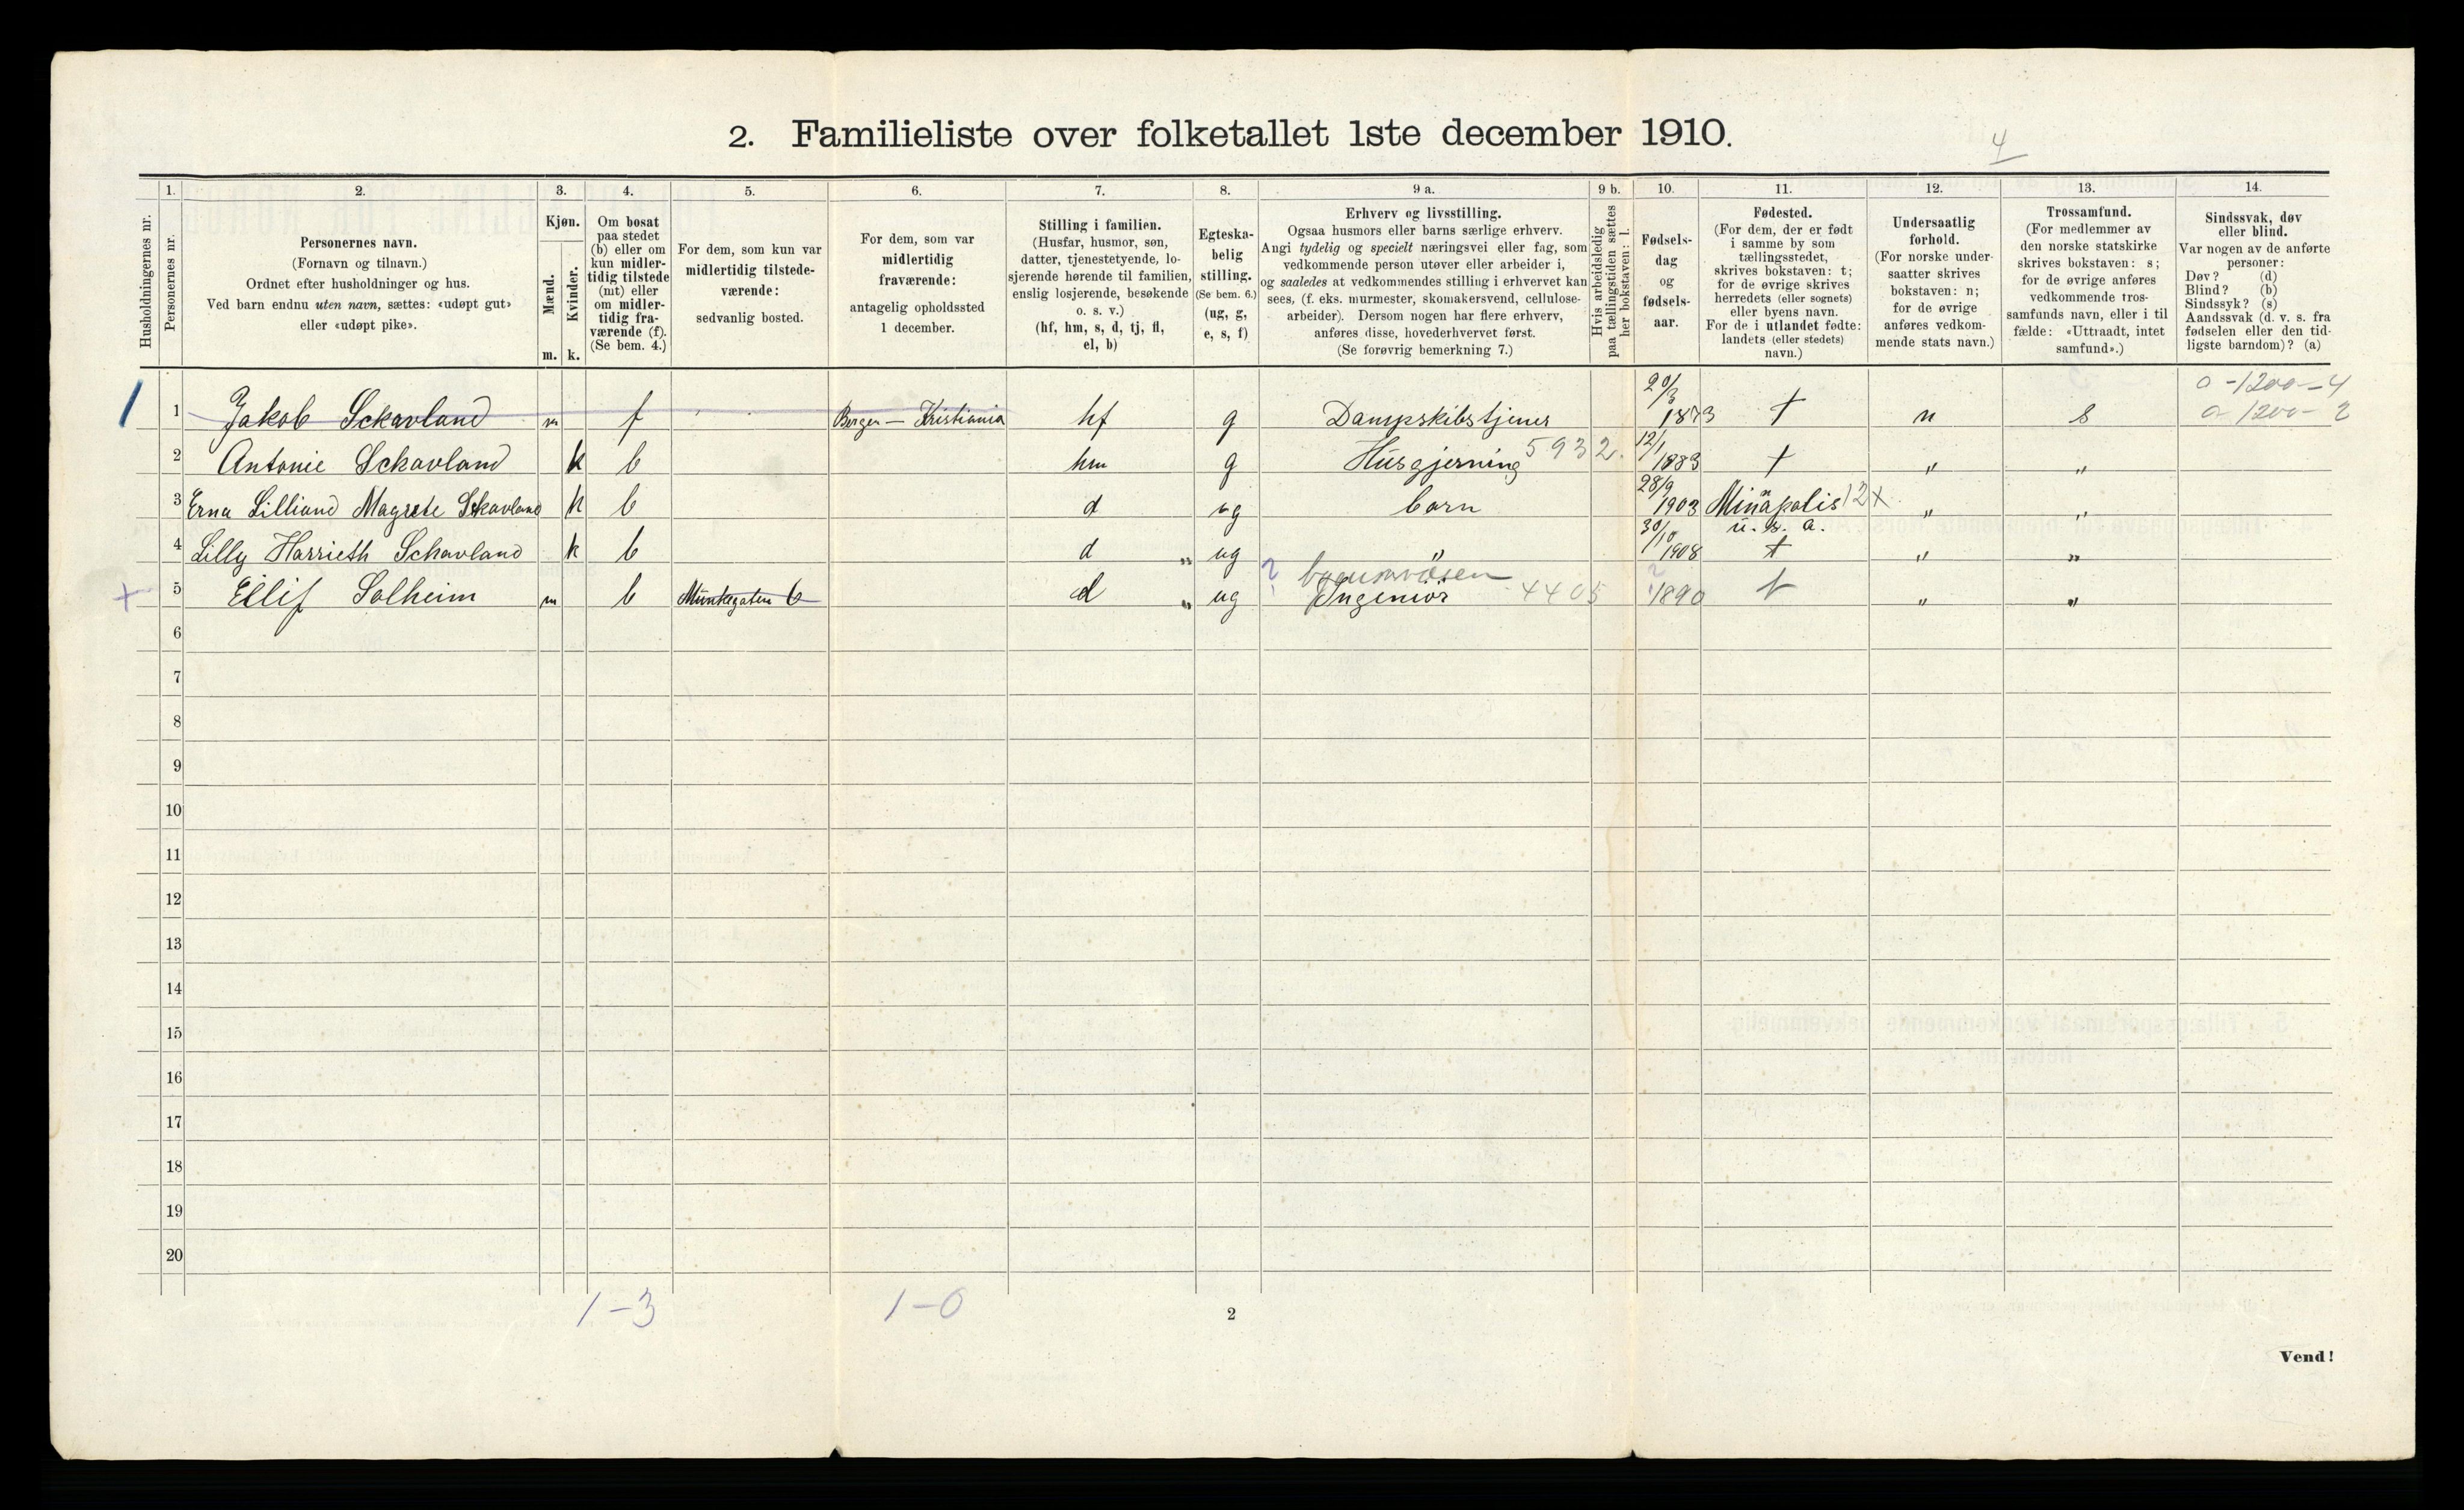 2. Familieliste over folketallet 1ste december 1910.
4
1. 2. 3. 4. 5. 6. 7. 8. 9 a. 9 b. 10. 11. 12. 13. 14.
Husholdningernes nr.
Personernes nr.
Personernes navn.
(Fornavn og tilnavn.)
Ordnet efter husholdninger og hus.
Ved barn endnu uten navn, sættes: «udøpt gut»
eller «udøpt pike».
Kjøn.
Mænd.
Kvinder.
m. k.
Om bosat
paa stedet
(b) eller om
kun midler-
tidig tilstede
(mt) eller
om midler-
tidig fra-
værende (f).
(Se bem. 4.)
For dem, som kun var
midlertidig tilstede-
værende:
sedvanlig bosted.
For dem, som var
midlertidig
fraværende:
antagelig opholdssted
1 december.
Stilling i familien.
(Husfar, husmor, søn,
datter, tjenestetyende, lo-
sjerende hørende til familien,
enslig losjerende, besøkende
o. s. v.)
(hf, hm, s, d, tj, fl,
el, b)
Egteska-
belig
stilling.
(Se bem. 6.)
(ug, g,
e, s, f)
Erhverv og livsstilling.
Ogsaa husmors eller barns særlige erhverv.
Angi tydelig og specielt næringsvei eller fag, som
vedkommende person utøver eller arbeider i,
og saaledes at vedkommendes stilling i erhvervet kan
sees, (f. eks. murmester, skomakersvend, cellulose-
arbeider). Dersom nogen har flere erhverv,
anføres disse, hovederhvervet først.
(Se forøvrig bemerkning 7.)
Hvis arbeidsledig
paa tællingstiden sættes
her bokstaven: l.
Fødsels-
dag
og
fødsels-
aar.
Fødested.
(For dem, der er født
i samme by som
tællingsstedet,
skrives bokstaven: t;
for de øvrige skrives
herredets (eller sognets)
eller byens navn.
For de i utlandet fødte:
landets (eller stedets)
navn.)
Undersaatlig
forhold.
(For norske under-
saatter skrives
bokstaven: n;
for de øvrige
anføres vedkom-
mende stats navn.)
Trossamfund.
(For medlemmer av
den norske statskirke
skrives bokstaven: s;
for de øvrige anføres
vedkommende tros-
samfunds navn, eller i til
fælde: «Uttraadt, intet
samfund».)
Sindssvak, døv
eller blind.
Var nogen av de anførte
personer:
Døv? (d)
Blind? (b)
Sindssyk? (s)
Aandssvak (d. v. s. fra
fødselen eller den tid-
ligste barndom)? (a)
0 -1200-4
1 1 Jakob Sckavland m f Bergen — Kristiania hf g Dampskibstjener 20/3 1873 t n s 0-1200-2
2 Antonie Sckavland k b hm g Husgjerning 5932. 12/1 1883 t " "
3 Erna Lilliand Magrete Sckavland k b d ug barn 28/9 1903 Minapolis 12x " "
u. s. a.
4 Lilly Harrieth Schavland k b d " ug " 30/10 1908 t " "
+ 5 Eilif Solheim m b Munkegaten 6 d " ug ? Ingeniör 4405 ? 1890 t " "
6
7
8
9
10
11
12
13
14
15
16
17
18
19
20
1-3 1-0
2
Vend!